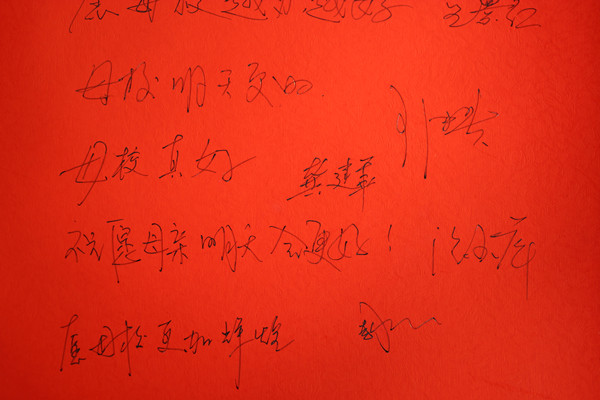 愿母校越办越好 王景红
母校明天更好
母校真好 龚建华
祝愿母亲明天会更好!
愿母校更加辉煌